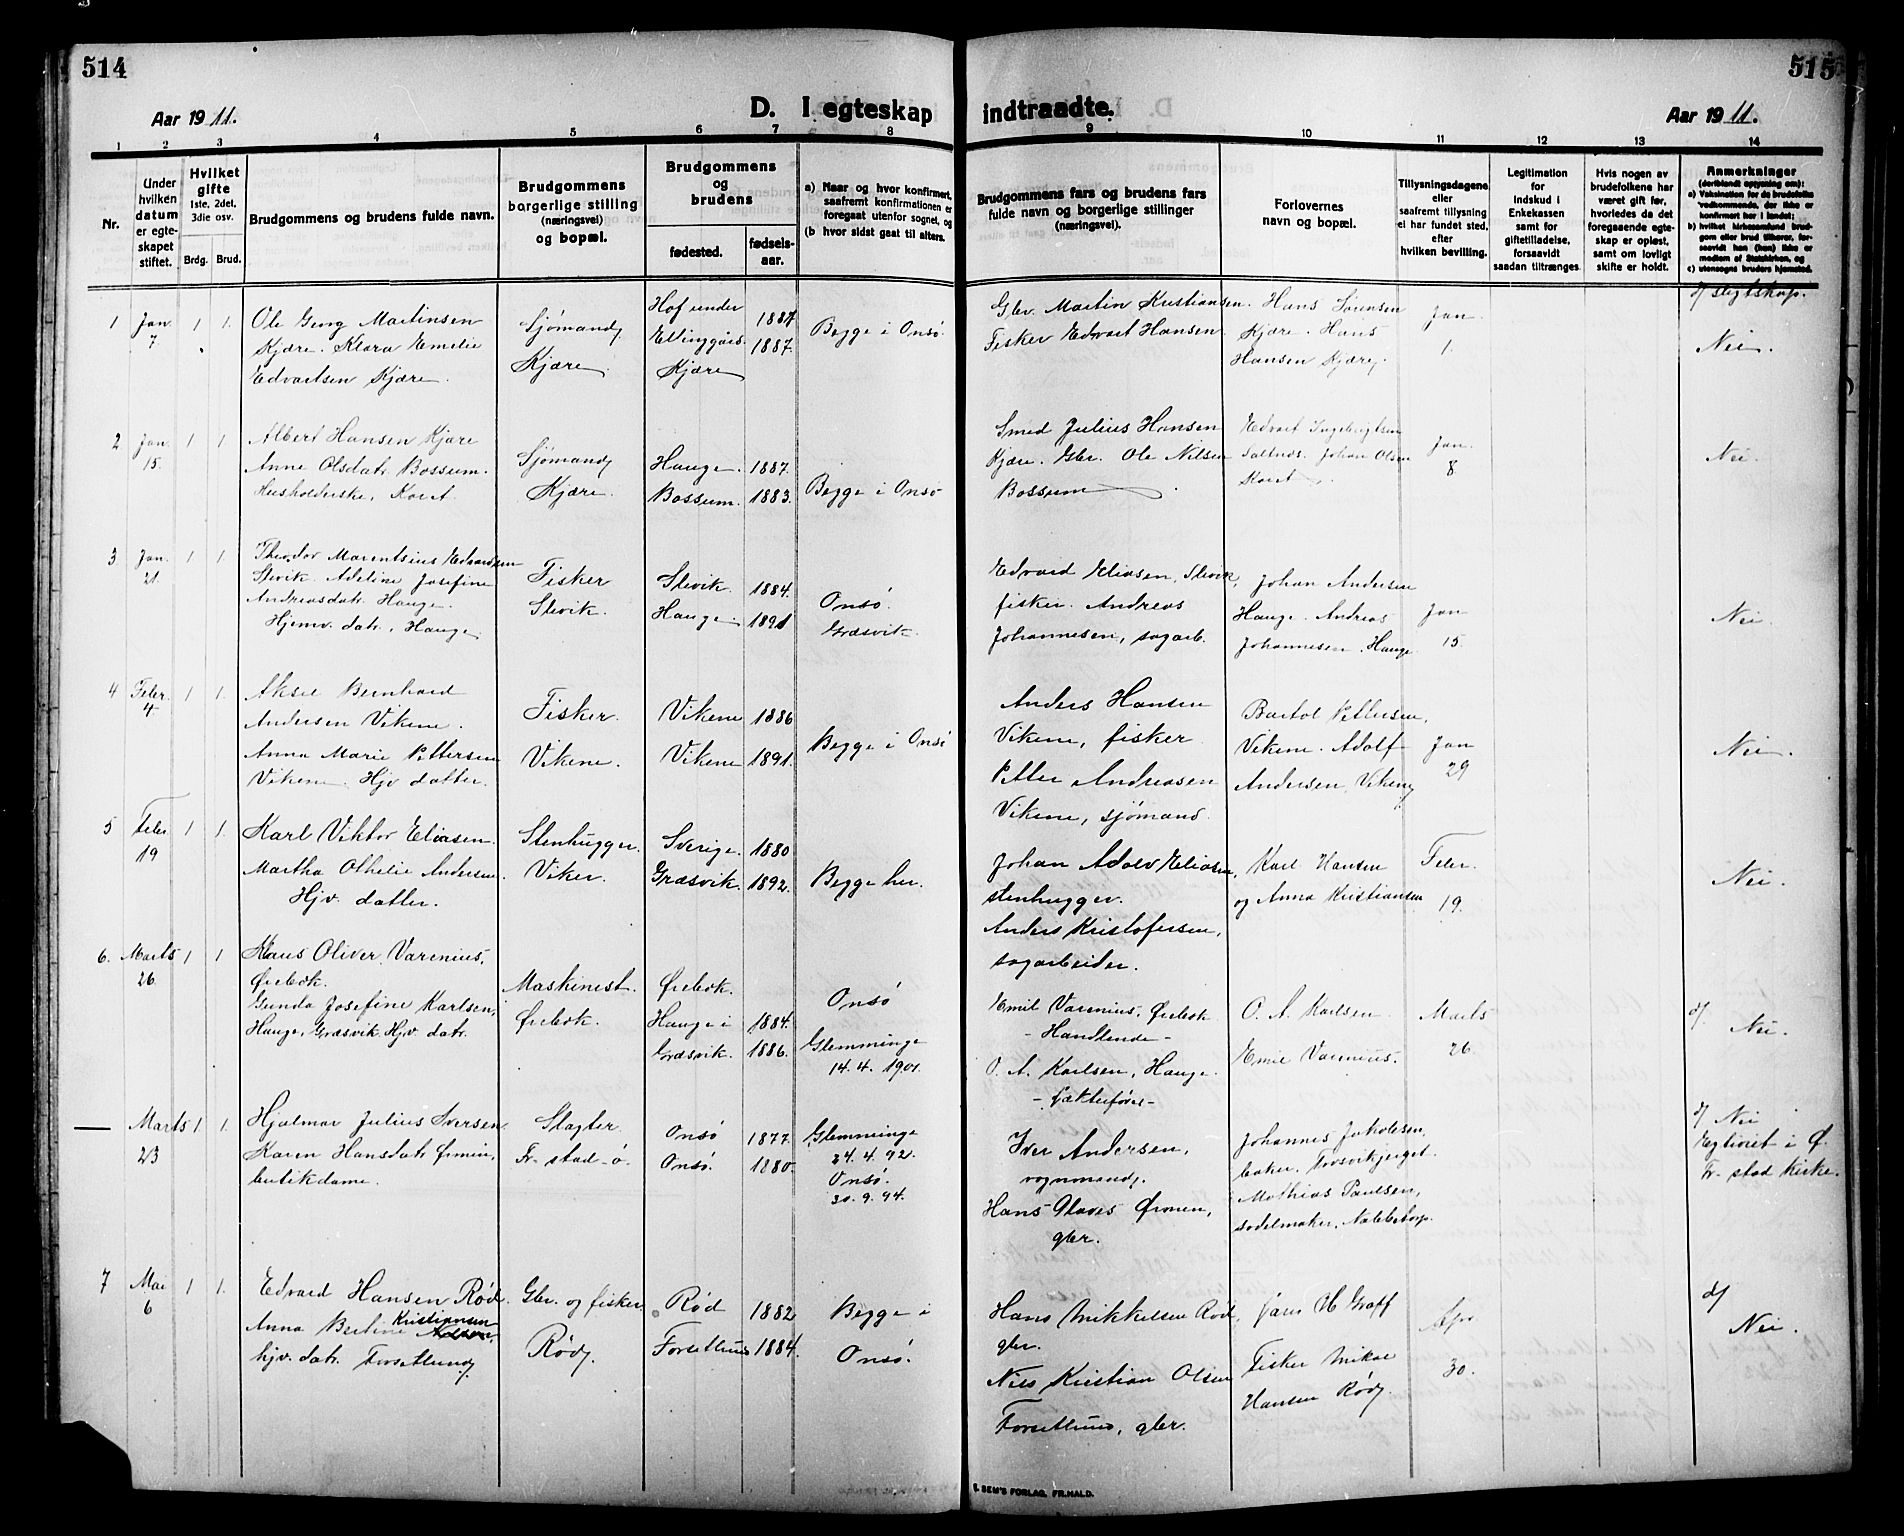 514
Aar 1911.
D. I egteskap
1 2 3 4 5 6 7 8
Nr.
Under hvilken datum er egteskapet stiftet.
Hvilket gifte 1ste, 2det, 3die osv.
Brdg. Brud.
Brudgommens og brudens fulde navn.
Brudgommens borgerlige stilling (næringsvei) og bopæl.
Brudgommens og brudens
fødested. fødsels-aar.
a) Naar og hvor konfirmert, saafremt konfirmationen er foregaat utenfor sognet, og
(b hvor sidst gaat til alters.
1 Jan. 7 1 1.
Ole Georg Martinsen
Kjære. Klara Emelie
Edvartsen Kjære.
Sjømand,
Kjære.
Hof under
Ellinggård. 1887
1887.
Kjære
Begge i Onsø.
2 Jan. 15. 1 1
Albert Hansen Kjære
Anne Olsdatr. Bossum.
Husholderske,
Sjømand,
Kjære.
Hauge. 1887.
Bossum. 1883.
Begge i Onsø
3 Jan. 21. 1 1.
Theodor Marentsius Edvardsen
Slevik. Adeline Josefine
Andreasdatr. Hauge.
Hjemv. datr., Hauge,
Fisker
Slevik.
Slevik. 1884.
Hauge. 1891
Onsø.
Græsvik.
4 Febr. 4. 1 1.
Aksel Bernhard
Andersen Vikene.
Anna Marie Pettersen
Vikene. Hjv datter.
Fisker.
Vikene.
Vikene 1886
Vikene 1891.
Begge i Onsø
5 Febr 19 1 1.
Karl Viktor Eliasen.
Martha Othelie Andersen.
Hjv. datter.
Stenhugger.
Viker.
Sverige. 1880
Græsvik. 1892.
Begge her.
6. Marts 26. 1 1
Klaus Oliver Varenius,
Ørebæk.
Gunda Josefine Karlsen,
Hauge, Græsvik Hjv. datr.
Maskinest.
Ørebæk.
Ørebæk.
Hauge i 1884.
Græsvik. 1886.
Onsø
Glemminge
14. 4. 1901.
— Marts 23 1 1.
Hjalmar Julius Iversen
Karen Hansdatr
butikdame.
Slagter
Fr.stad-ø.
Onsø 1877.
Onsø. 1880.
Glemminge
24. 4. 92.
Onsø.
30. 9. 94.
7 Mai 6 1 1.
Edvard Hansen Rød.
Anna Bertine Kristiansen
hjv. datr. Forsetlund,
Gbr. og fisker.
Rød,
Rød 1882
Forsetlund 1884.
Begge i
Onsø.
515
indtraadte.
Aar 1911.
9 10 11 12 13 14
Brudgommens fars og brudens fars fulde navn og borgerlige stillinger (næringsvei).
Forlovernes navn og bopæl.
Tillysningsdagene eller saafremt tillysning ei har fundet sted, efter hvilken bevilling.
Legitimation for indskud i Enkekassen samt for giftetilladelse, forsaavidt saadan tiltrænges
Hvis nogen av brudefolkene har været gift før, hvorledes da det foregaaende egteskap er opløst, samt om lovligt skifte er holdt.
Anmerkninger (deriblandt oplysning om):
a) Vaksination for de brudefolks vedkommende, der ikke er konfirmert her i landet;
b) hvilket kirkesamfund brudgom eller brud tilhører, forsaavidt han (hun) ikke er medlem af Statskirken, og
c) utensogns bruders hjemsted.
Gbr. Martin Kristiansen.
Fisker Edvart Hansen
Hans Sørensen
Kjære. Hans
Hansen Kjære,
Jan. 1.
d/ slegtskap.
Nei.
Smed Julius Hansen
Kjære. Gbr. Ole Nilsen
Bossum
Edvart Ingebrigtsen
Saltnes. Johan Olsen
Jan. 8
Nei.
Edvard Eliasen, Slevik,
fisker. Andreas
Johannesen, sagarb.
Johan Andersen
Hauge. Andreas
Johannesen. Hauge
Jan 15.
Nei.
Anders Hansen
Vikene, fisker
Petter Andreasen
Vikene, sjømand.
Bartol Pettersen,
Vikene. Adolf
Andersen, Vikene,
Jan 29
Nei.
Johan Adolv Eliasen,
stenhugger.
Anders Kristofersen,
sagarbeider.
Karl Hansen
og Anna Kristiansen
Febr. 19.
Nei.
Emil Varenius, Ørebæk
- Handlende -
O. A. Karlsen, Hauge.
O. A. Karlsen.
Emil Varenius.
Marts 26.
d/ Nei.
Iver Andersen,
vognmand,.
Hans Olaves
gbr.
Johannes Jakobsen,
baker.
Mathias Paulsen,
sadelmaker, Nabbetorp.
d/ Nei
Egteviet i Ø.
Fr.stad Kirke.
Hans Mikkelsen Rød,
gbr.
Nils Kristian Olsen
Forsetlund, gbr.
Lars H Graff
Fisker Mikal
Hansen Rød,
Apr 30.
d/ Nei.
E. SEM'S FORLAG, FR.HALD.